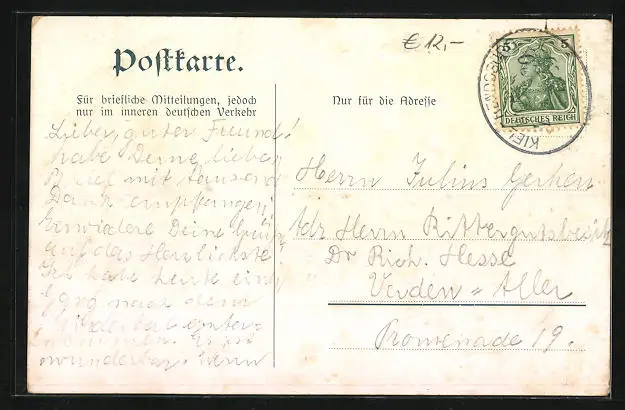 € 12,-
Postkarte.
Für briefliche Mitteilungen, jedoch
nur im inneren deutschen Verkehr
Nur für die Adresse
5 5
DEUTSCHES REICH
KIEL
Lieber, guter Freund!
habe Deine lieben
Brief mit tausend
Dank empfangen,
Erwidere Deine Grüße
auf das Herzlichste
Ich habe heute ein
nach dem
unter=
nommen. Es ist
wunderbar. Wenn
Herrn Julius Gerken
Adr. Herrn Rittergutsbesitz
Dr Rich. Hesse
Verden = Aller
Promenade 19.